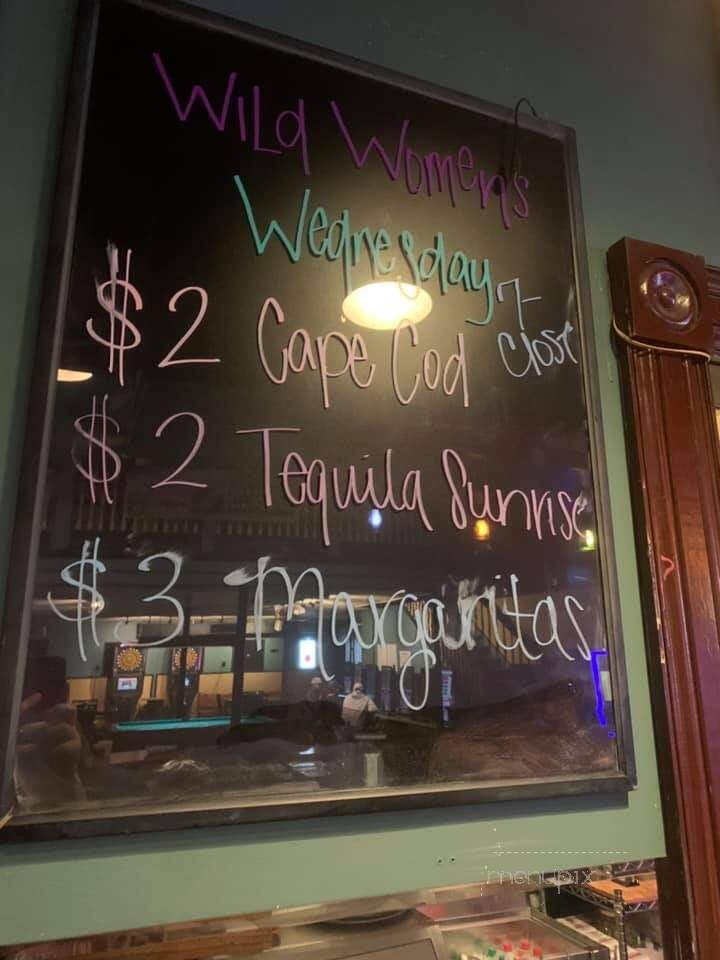 Wild Womens
Wednesday
7-
Close
$2 Cape Cod
$2 Tequila Sunrise
$3 Margaritas
menupix